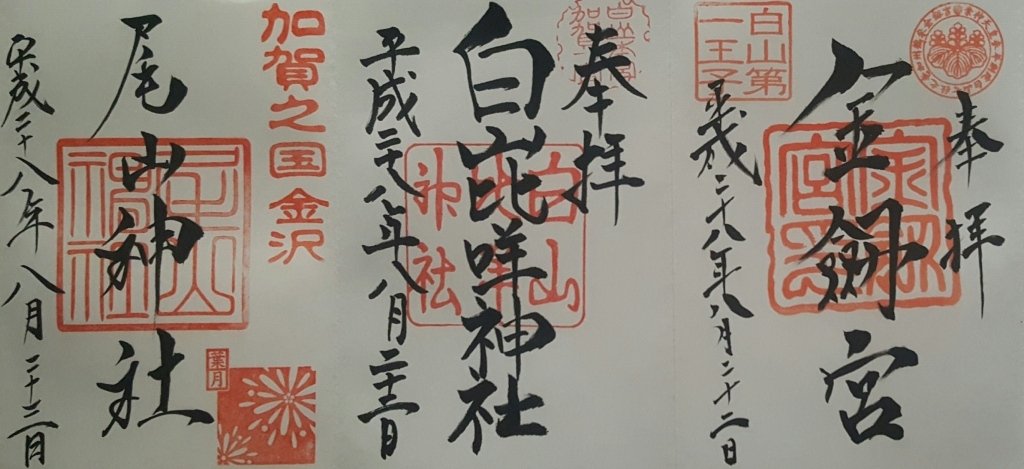 奉拝
金劔宮
白山第
一王子
平成二十八年八月二十二日
奉拝
白山比咩神社
白山
比咩
神社
平成二十八年八月二十二日
加賀之国金沢
尾山神社
尾山
神社
葉月
平成二十八年八月二十二日